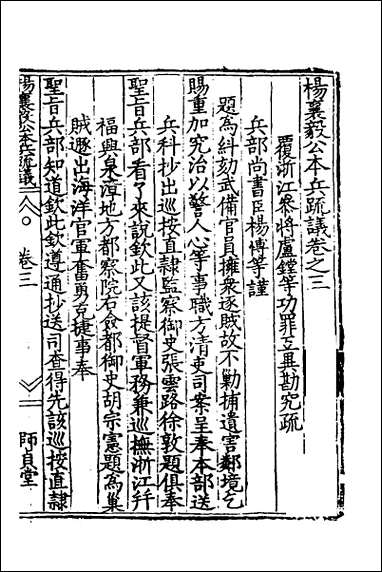 楊襄毅公本兵疏議卷之三
覆浙江叅將盧鏜等功罪互異勘究疏
兵部尚書臣楊博等謹
題為糾劾武備官員擁衆逐賊故不勦捕遺害鄰境乞
賜重加究治以警人心等事職方清吏司案呈奉本部送
兵科抄出巡按直隷監察御史張雲路徐敦題俱奉
聖旨兵部看了來說欽此又該提督軍務兼巡撫浙江幷
福興泉漳地方都察院右僉都御史胡宗憲題為巢
賊遯出海洋官軍奮勇克捷事奉
聖旨兵部知道欽此欽遵通抄送司查得先該巡按直隷
楊襄毅公本兵疏議 卷三 師貞堂